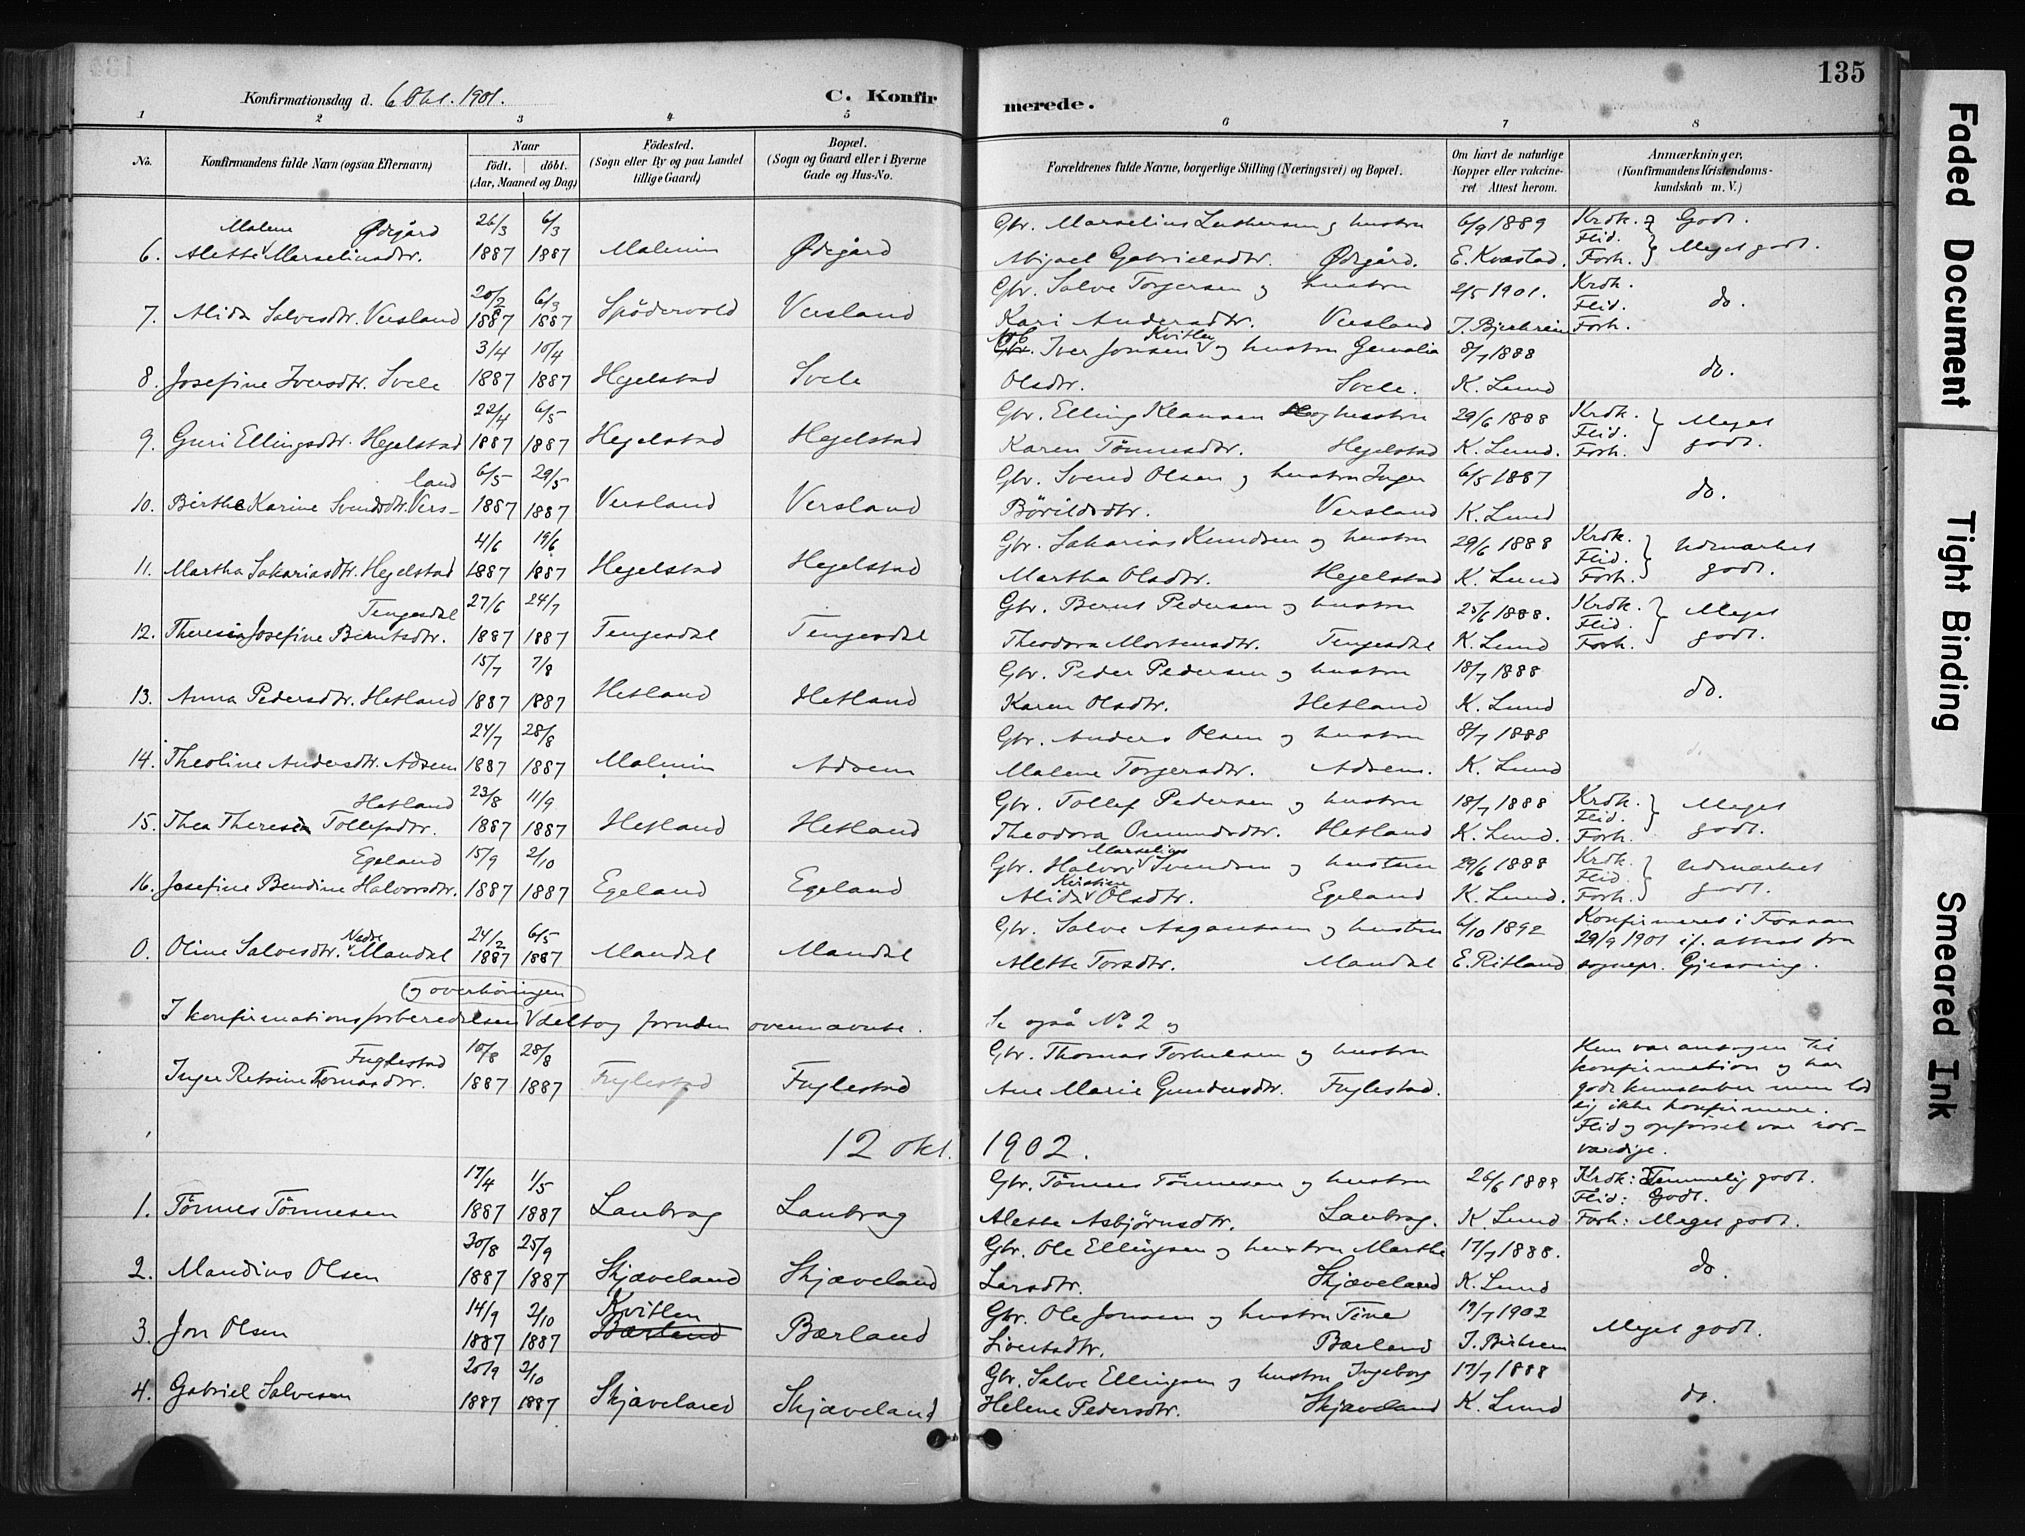 135
Konfirmationsdag d. 6 Okt. 1901. C. Konfir merede.
1 2 3 4 5 6 7 8
No.
Konfirmandens fulde Navn (ogsaa Efternavn)
Naar
födt. döbt.
(Aar, Maaned og Dag)
Födested.
(Sogn eller By og paa Landet
tillige Gaard)
Bopæl.
(Sogn og Gaard eller i Byerne
Gade og Hus-No.
Forældrenes fulde Navne, borgerlige Stilling (Næringsvei) og Bopæl.
Om havt de naturlige
Kopper eller vaccine-
ret Attest herom.
Anmærkninger,
(Konfirmandens Kristendoms-
kundskab m. V.)
Malene Ødegård 26/3 6/3 Gbr. Marselius Luthersen og hustru 6/9 1889 Krdk. Godt.
6. Alette Marseliusdtr. 1887 1887 Malmim Ødegård Abigael Gabrielsdtr. Ødegård. E. Kvæstad. Flid. Forh. Meget godt.
20/2 6/3 Gbr. Salve Torgersen og hustru 2/5 1901. Krdk.
7. Alida Salvesdtr. Versland 1887 1887 Spödervold Versland Kari Andersdtr. Versland Flid. Forh. do.
3/4 10/4 Iver Jonsen Kvitlen og hustru 8/7 1888
8. Josefine Iversdtr. Svele 1887 1887 Hegelstad Svele Olsdtr. Svele. K. Lund do.
22/4 6/5 Gbr. Elling Klausen og hustru 29/6 1888 Krdk. Meget
9. Guri Ellingsdtr. Hegelstad 1887 1887 Hegelstad Hegelstad Karen Tönnesdtr. Hegelstad K. Lund. Flid. Forh. godt.
land 6/5 29/5 Gbr. Svend Olsen og hustru Inger 6/5 1887
10. Birthe Karine Svendsdtr. Vers- 1887 1887 Versland Versland Börildsdtr. Versland K. Lund do.
4/6 19/6 Gbr. Sakarias Knudsen og hustru 29/6 1888 Krdk. Udmærket
11. Martha Sakariasdtr. Hegelstad 1887 1887 Hegelstad Hegelstad Martha Olsdtr. Hegelstad K. Lund Flid. Forh. godt.
Tengesdal 27/6 24/7 Gbr. Bernt Pedersen og hustru 25/6 1888. Krdk. Meget
12. Theresia Josefine Berntsdtr. 1887 1887 Tengesdal Tengesdal Theodora Mortensdtr. Tengesdal K. Lund Flid. Forh. godt.
15/7 7/8 Gbr. Peder Pedersen og hustru 18/7 1888
13. Anna Pedersdtr. Hetland 1887 1887 Hetland Hetland Karen Olsdtr. Hetland K. Lund do.
24/7 28/8 Gbr. Anders Olsen og hustru 8/7 1888
14. Theoline Andersdtr. Adsem 1887 1887 Malmim Adsem Malene Torgersdtr. Adsem. K. Lund
Hetland 23/8 11/9 Gbr. Tollef Pedersen og hustru 18/7 1888 Krdk. Meget
15. Thea Theresia Tollefsdtr. 1887 1887 Hetland Hetland Theodora Omundsdtr. Hetland K. Lund. Flid. Forh. godt.
Egeland 15/9 2/10 Gbr. Halvor Marselius Svendsen og hustru 29/6 1888 Krdk. Udmærket
16. Josefine Bendine Halvorsdtr. 1887 1887 Egeland Egeland Alida Kirstine Olsdtr. Egeland K. Lund. Flid. Forh. godt.
24/2 6/5 Gbr. Salve Asgautsen og hustru 6/10 1892 Konfirmeret i Fossan
0. Oline Salvesdtr. Nedre Mandal 1887 1887 Mandal Mandal Alette Torsdtr. Mandal E. Ritland 29/9 1901 if. attest fra
sognepr. Gjessing.
og overhöringen
I konfirmationsforberedelsen deltog foruden ovennævnte. Se også No. 2 og
Fuglestad 10/8 28/8 Gbr. Thomas Torkelsen og hustru Hun var antagen til
Inger Retsine Tomasdtr. 1887 1887 Fuglestad Fuglestad Ane Marie Gundersdtr. Fuglestad. konfirmation og har
gode kundskaber men lod
sig ikke konfirmere.
Flid og opförsel var ros-
værdige.
12 okt. 1902.
17/4 1/5 Gbr. Tönnes Tönnesen og hustru 26/6 1888 Krdk: Temmelig godt.
1. Tönnes Tönnesen 1887 1887 Lautrag Lautrag Alette Asbjörnsdtr. Lautrag. K. Lund Flid: Godt. Forh: Meget godt.
30/8 25/9 Gbr. Ole Ellingsen og hustru Marthe 17/7 1888.
2. Mandius Olsen 1887 1887 Skjæveland Skjæveland Larsdtr. Skjæveland K. Lund do
14/9 2/10 Kvitlen Gbr. Ole Jonsen og hustru Tine 19/7 1902
3. Jon Olsen 1887 1887 Bærland Bærland Sivertsdtr. Bærland Meget godt.
20/9 2/10 Gbr. Salve Ellingsen og hustru Ingeborg 17/7 1888
4. Gabriel Salvesen 1887 1887 Skjæveland Skjæveland Helene Pedersdtr. Skjæveland K. Lund do.
Faded Document
Tight Binding
Smeared Ink